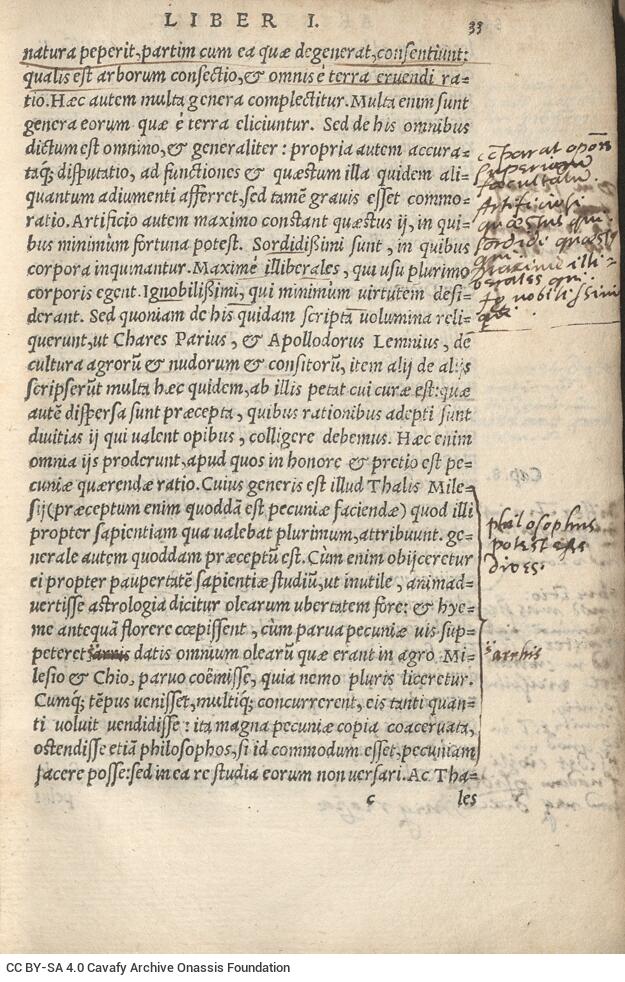 LIBER I.
33
natura peperit, partim cum ea quæ degenerat, consentiunt:
qualis est arborum consectio, & omnis è terra eruendi ra-
tio. Hæc autem multa genera complectitur. Multa enim sunt
genera eorum quæ è terra eliciuntur. Sed de his omnibus
dictum est omnino, & generaliter: propria autem accura-
tàq; disputatio, ad functiones & quæstum illa quidem ali-
quantum adiumenti afferret, sed tamē grauis esset commo-
ratio. Artificio autem maximo constant quæstus ij, in qui-
bus minimùm fortuna potest. Sordidißimi sunt, in quibus
corpora inquinantur. Maximè illiberales, qui usu plurimo
corporis egent. Ignobilißimi, qui minimùm uirtutem desi-
derant. Sed quoniam de his quidam scripta uolumina reli-
querunt, ut Chares Parius, & Apollodorus Lemnius, de
cultura agrorū & nudorum & consitorū, item alij de alijs
scripserūt multa hæc quidem, ab illis petat cui curæ est: quæ
autē dispersa sunt præcepta, quibus rationibus adepti sunt
diuitias ij qui ualent opibus, colligere debemus. Hæc enim
omnia ijs proderunt, apud quos in honore & pretio est pe-
cuniæ quærendæ ratio. Cuius generis est illud Thalis Mile-
sij (præceptum enim quoddā est pecuniæ faciendæ) quod illi
propter sapientiam qua ualebat plurimum, attribuunt. ge-
nerale autem quoddam præceptū est. Cùm enim obijceretur
ei propter paupertatē sapientiæ studiū, ut inutile, animad-
uertisse astrologia dicitur olearum ubertatem fore: & hye-
me antequā florere cœpissent, cùm parua pecuniæ uis sup-
peteret datis omnium olearū quæ erant in agro Mi-
lesio & Chio, paruo coëmisse, quia nemo pluris liceretur.
Cumq; tēpus uenisset, multiq; concurrerent, eis tanti quan-
ti uoluit uendidisse: ita magna pecuniæ copia coaceruata,
ostendisse etiā philosophos, si id commodum esset, pecuniam
facere posse: sed in ea re studia eorum non uersari. Ac Tha-
c les
Artificiosi
quæstus qui
sordidi
maxime illi-
berales qui
ignobilissimi
philosophus
potest esse
dives.
arrhis
CC BY-SA 4.0 Cavafy Archive Onassis Foundation